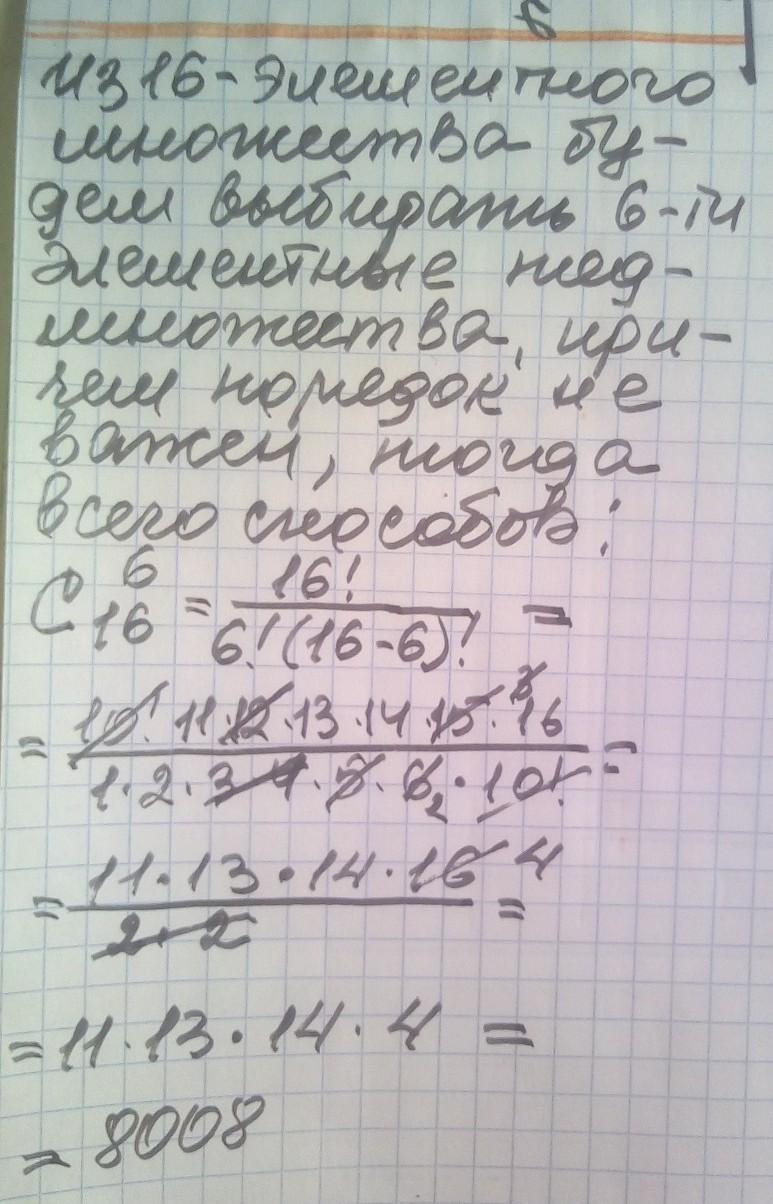 Из 16-элементного
множества бу-
дем выбирать 6-ти
элементные под-
множества, при-
чем порядок не
важен, тогда
всего способов:
C 6 16 = 16! / 6!(16-6)! =
= 10! 11·12·13·14·15·16 3 / 1·2·3·4·5·6 2·10! =
= 11·13·14·16 4 / 2·2 =
= 11·13·14·4 =
= 8008